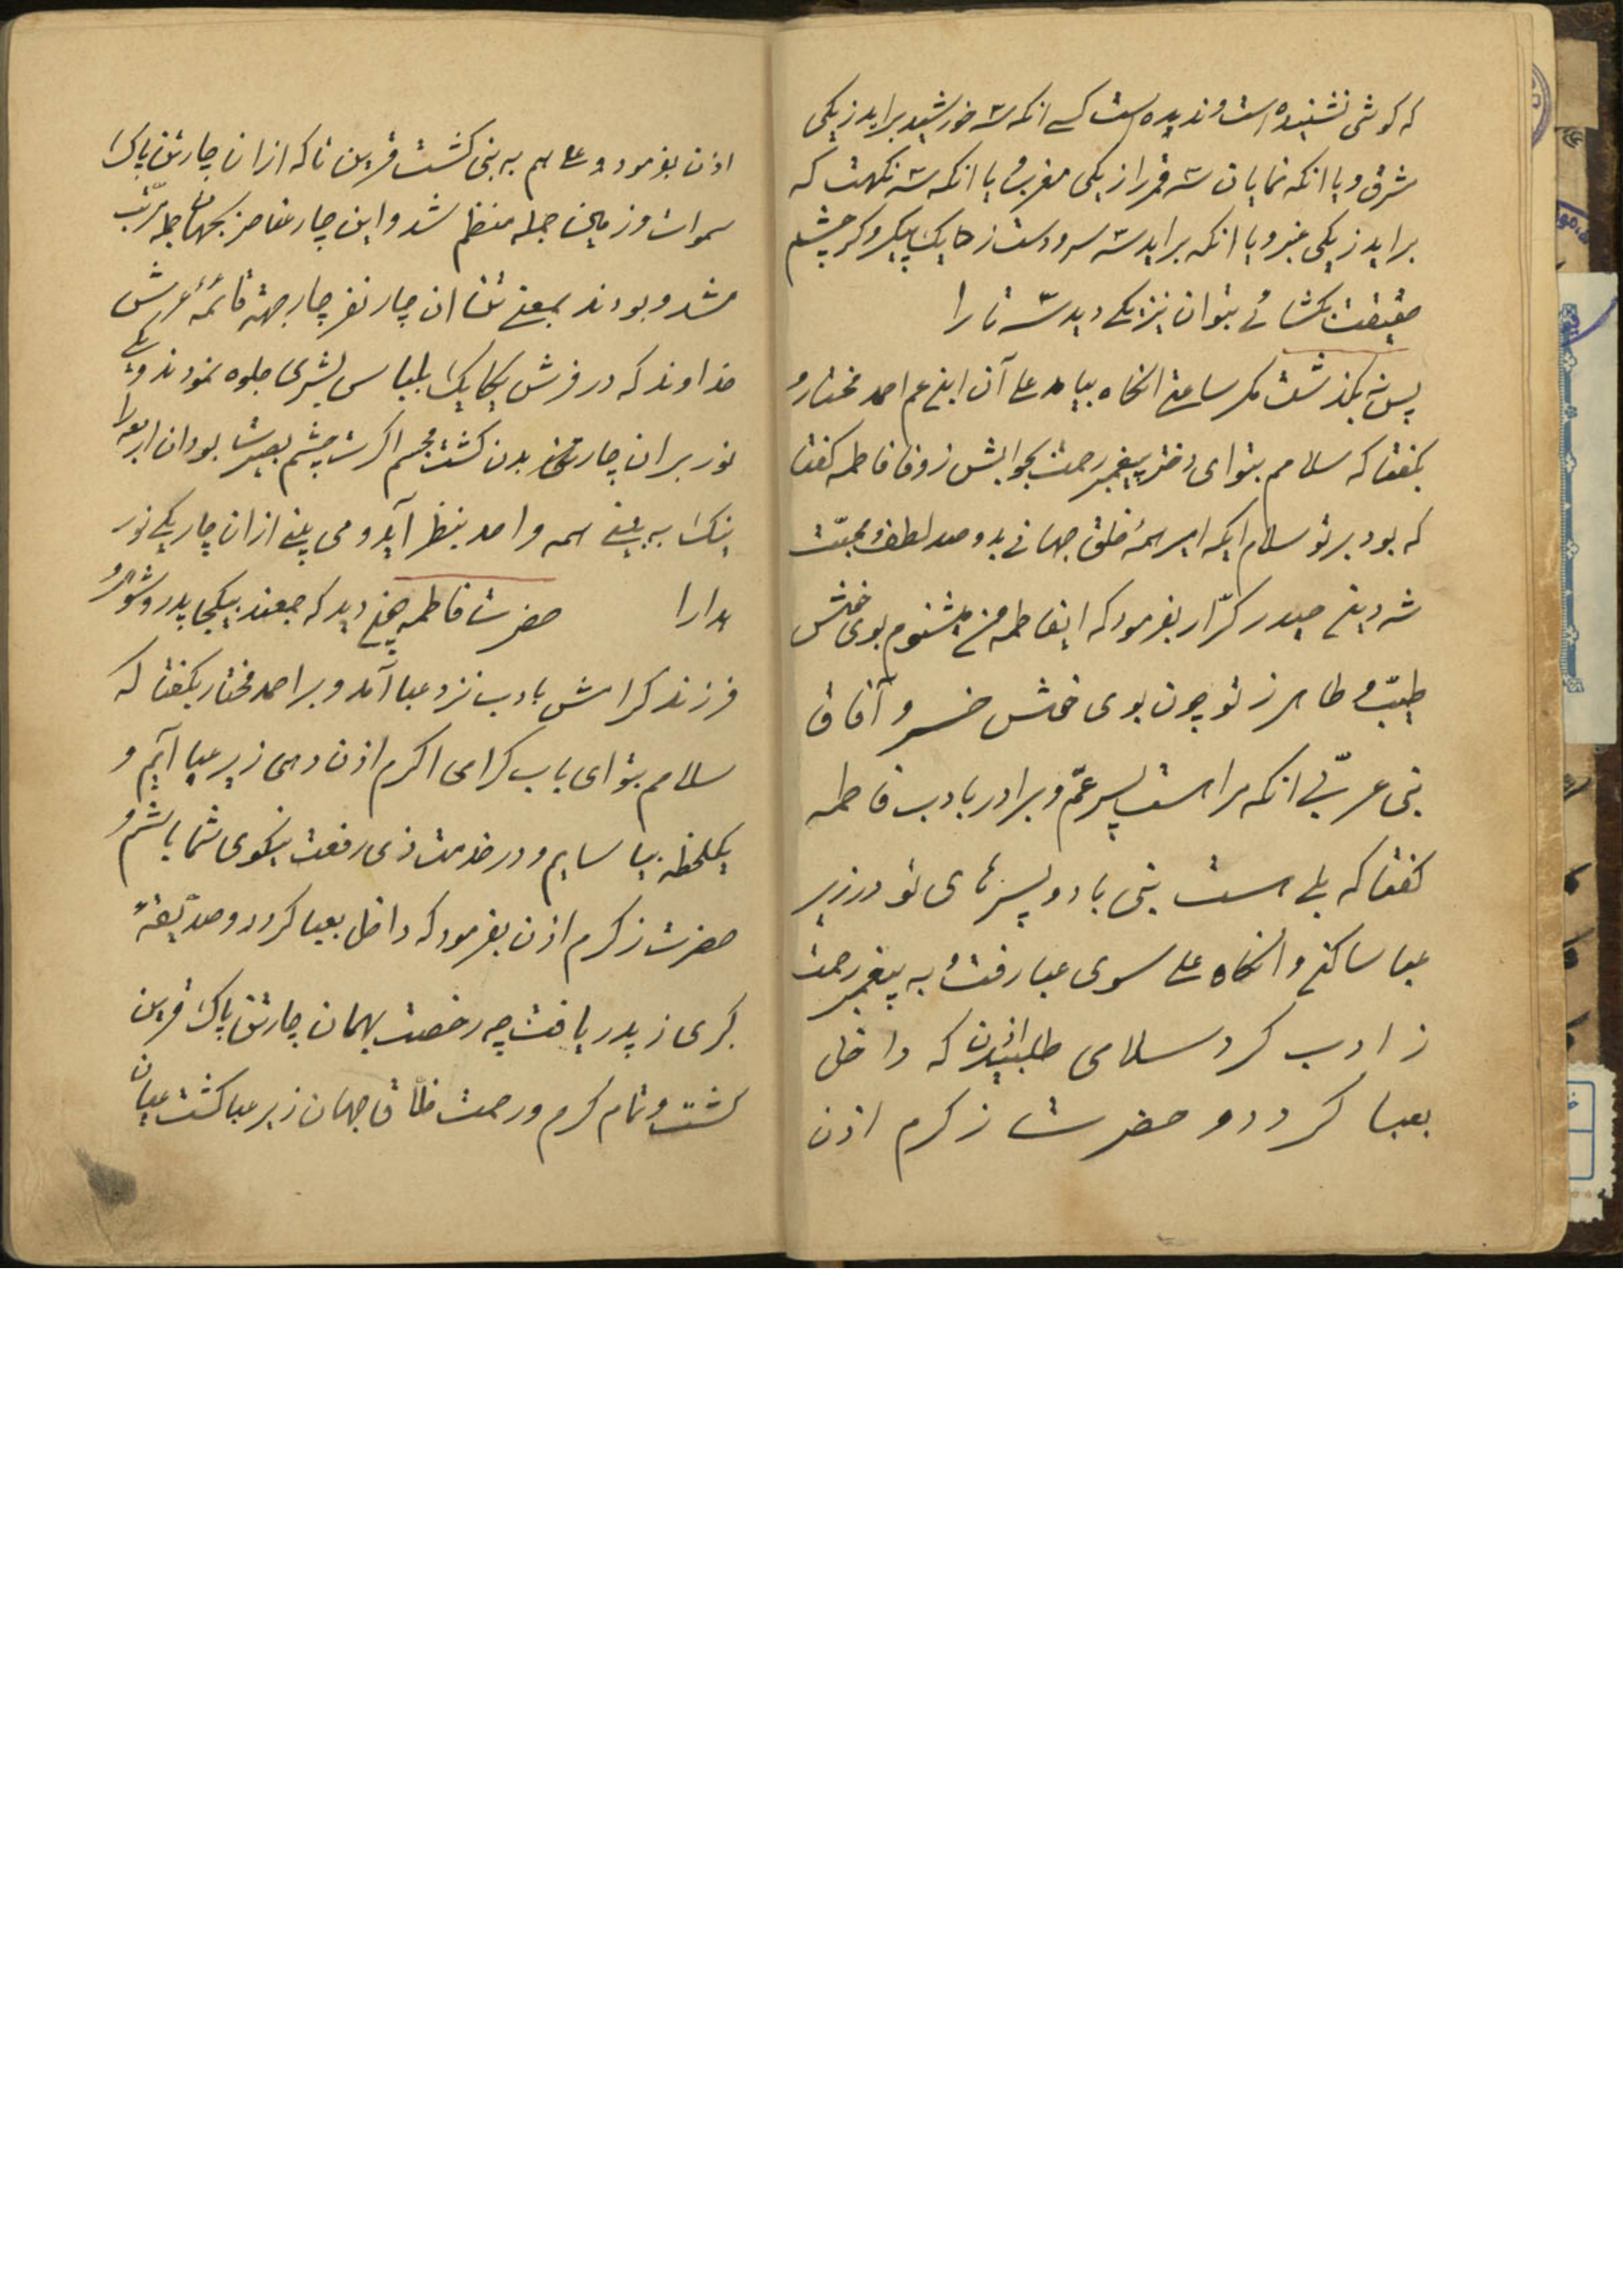 که گوشی نشنیده است و ندیده است کسی انکه سه خورشید براید ز یکی
شرق و یا انکه نمایان سه قمر از یکی مغرب و یا انکه سه نکهت که
براید ز یکی عنبر و یا انکه براید سه سر و دست ز یک پیکر و گر چشم
حقیقت بگشائی بتوان نیز یکی دید سه تا را
پس نه بگذشت مگر ساعتی انگاه بیامد علی آن ابن عم احمد مختار و
بگفتا که سلامم بتو ای دختر پیغمبر رحمت بجوابش ز وفا فاطمه گفتا
که بود بر تو سلام ایکه امیر همهٔ خلق جهانی بدو صد لطف و محبّت
شه دین حیدر کرّار بفرمود که ایفاطمه من میشنوم بوی خوش
طیّب و طاهر ز تو چون بوی خوش خسرو آفاق
نبی عربّی انکه مرا هست پسر عمّ و برادر بادب فاطمه
گفتا که بلی هست نبی با دو پسرهای تو در زیر
عبا ساکن و انگاه علی سوی عبا رفت و به پیغمبر رحمت
ز ادب کرد سلامی طلبید اذن که داخل
بعبا گردد و حضرت ز کرم اذن
اذن بفرمود و علی هم به نبی گشت قرین تا که ازان چارتن پاک
سموات و زمین جمله منظم شد و این چار عناصر بجهان جمله مرتّب
شد و بودند بمعنی تن ان چار نفر چار جهة قائمهٔ عرش
خداوند که در فرش یکایک بلباس بشری جلوه نمودند و یکی
نور بران چار بدن گشت مجسم اگرت چشم بصیرت بود ان اربعه را
نیک به بینی همه واحد بنظر آید و می بینی ازان چار یکی نور
هدارا حضرت فاطمه چون دید که جمعند بیکجا پدر و شوهر و
فرزند گرامش بادب نزد عبا آمد و بر احمد مختار بگفتا که
سلامم بتو ای باب گرامی اگرم اذن دهی زیر عبا آیم و
یکلحظه بیاسایم و در خدمت ذی رفعت نیکوی شما باشم و
حضرت ز کرم اذن بفرمود که داخل بعبا گردد و صدّیقهٔ
کبری ز پدر یافت چه رخصت بهمان چارتن پاک قرین
گشت و تمام کرم و رحمت خلّاق جهان زیر عبا گشت عیان